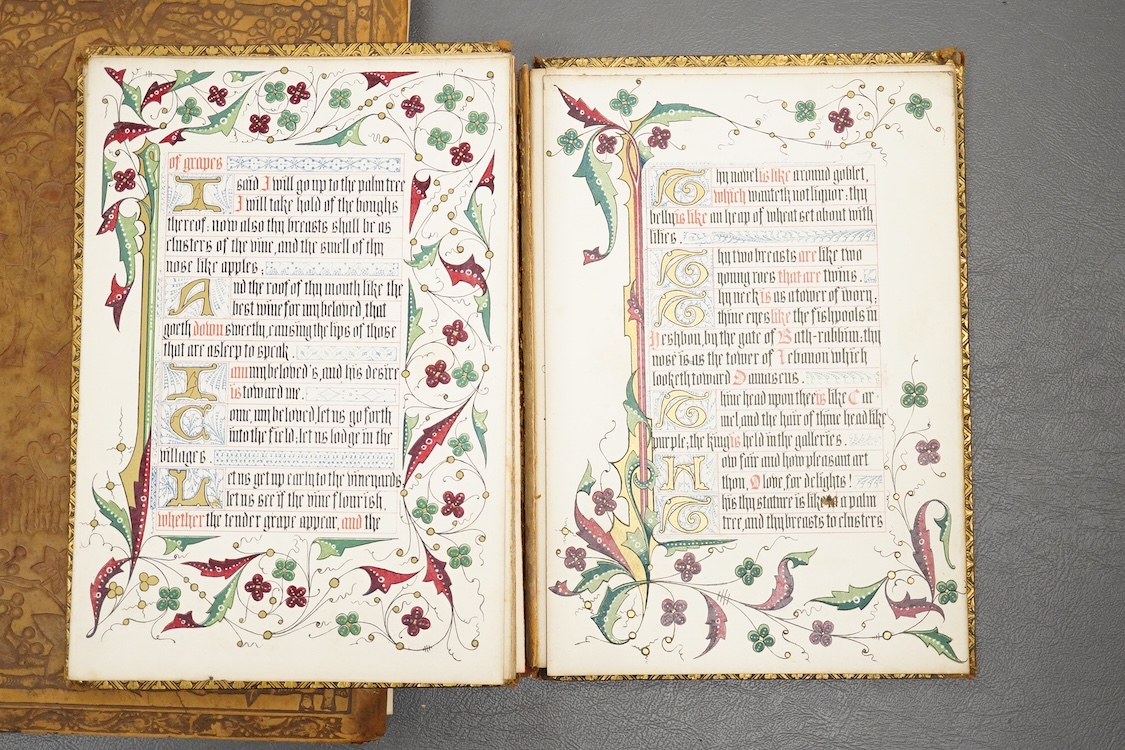 of grapes
I said I will go up to the palm tree
I will take hold of the boughs
thereof: now also thy breasts shall be as
clusters of the vine, and the smell of thy
nose like apples;
And the roof of thy mouth like the
best wine for my beloved, that
goeth down sweetly, causing the lips of those
that are asleep to speak.
I am my beloved's, and his desire
is toward me.
Come, my beloved let us go forth
into the field; let us lodge in the
villages.
Let us get up early to the vineyards
let us see if the vine flourish,
whether the tender grape appear, and the
Thy navel is like a round goblet,
which wanteth not liquor: thy
belly is like an heap of wheat set about with
lilies.
Thy two breasts are like two
young roes that are twins.
Thy neck is as a tower of ivory;
thine eyes like the fishpools in
Heshbon, by the gate of Bath-rabbim: thy
nose is as the tower of Lebanon which
looketh toward Damascus.
Thine head upon thee is like Car-
mel, and the hair of thine head like
purple, the king is held in the galleries.
How fair and how pleasant art
thou, O love, for delights!
This thy stature is like a palm
tree, and thy breasts to clusters